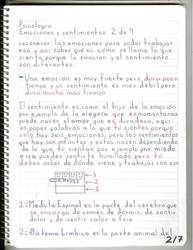 Psicología
Emociones y sentimientos 2 de 4
reconocer las emociones para poder trabajar
eso y así saber que es, cómo se llama lo que
siento porque la emoción y el sentimiento
son diferentes
- Una emoción es muy fuerte pero dura poco
tiempo y un sentimiento es más débil pero
dura mucho más tiempo
El sentimiento es como el hijo de la emoción
por ejemplo de la alegría que es momentanea
puede nacer el amor que es duradero, aquí
es poner palabras a lo que sientes porque
solo hay seis emociones, pero los sentimientos
que hay son infinitos y estos nacen dependiendo
de lo que tu sientas por ejemplo por miedo
o ira puedes sentirte humillado pero tu
debes saber de dónde viene y trabajar con eso
3
2
1
1= Médula Espinal es la parte del cerebro que
se encarga de comer, de dormir, de sentir
dolor y de sentir calor o frío
2= Sistema Límbico es la parte animal del
2/7